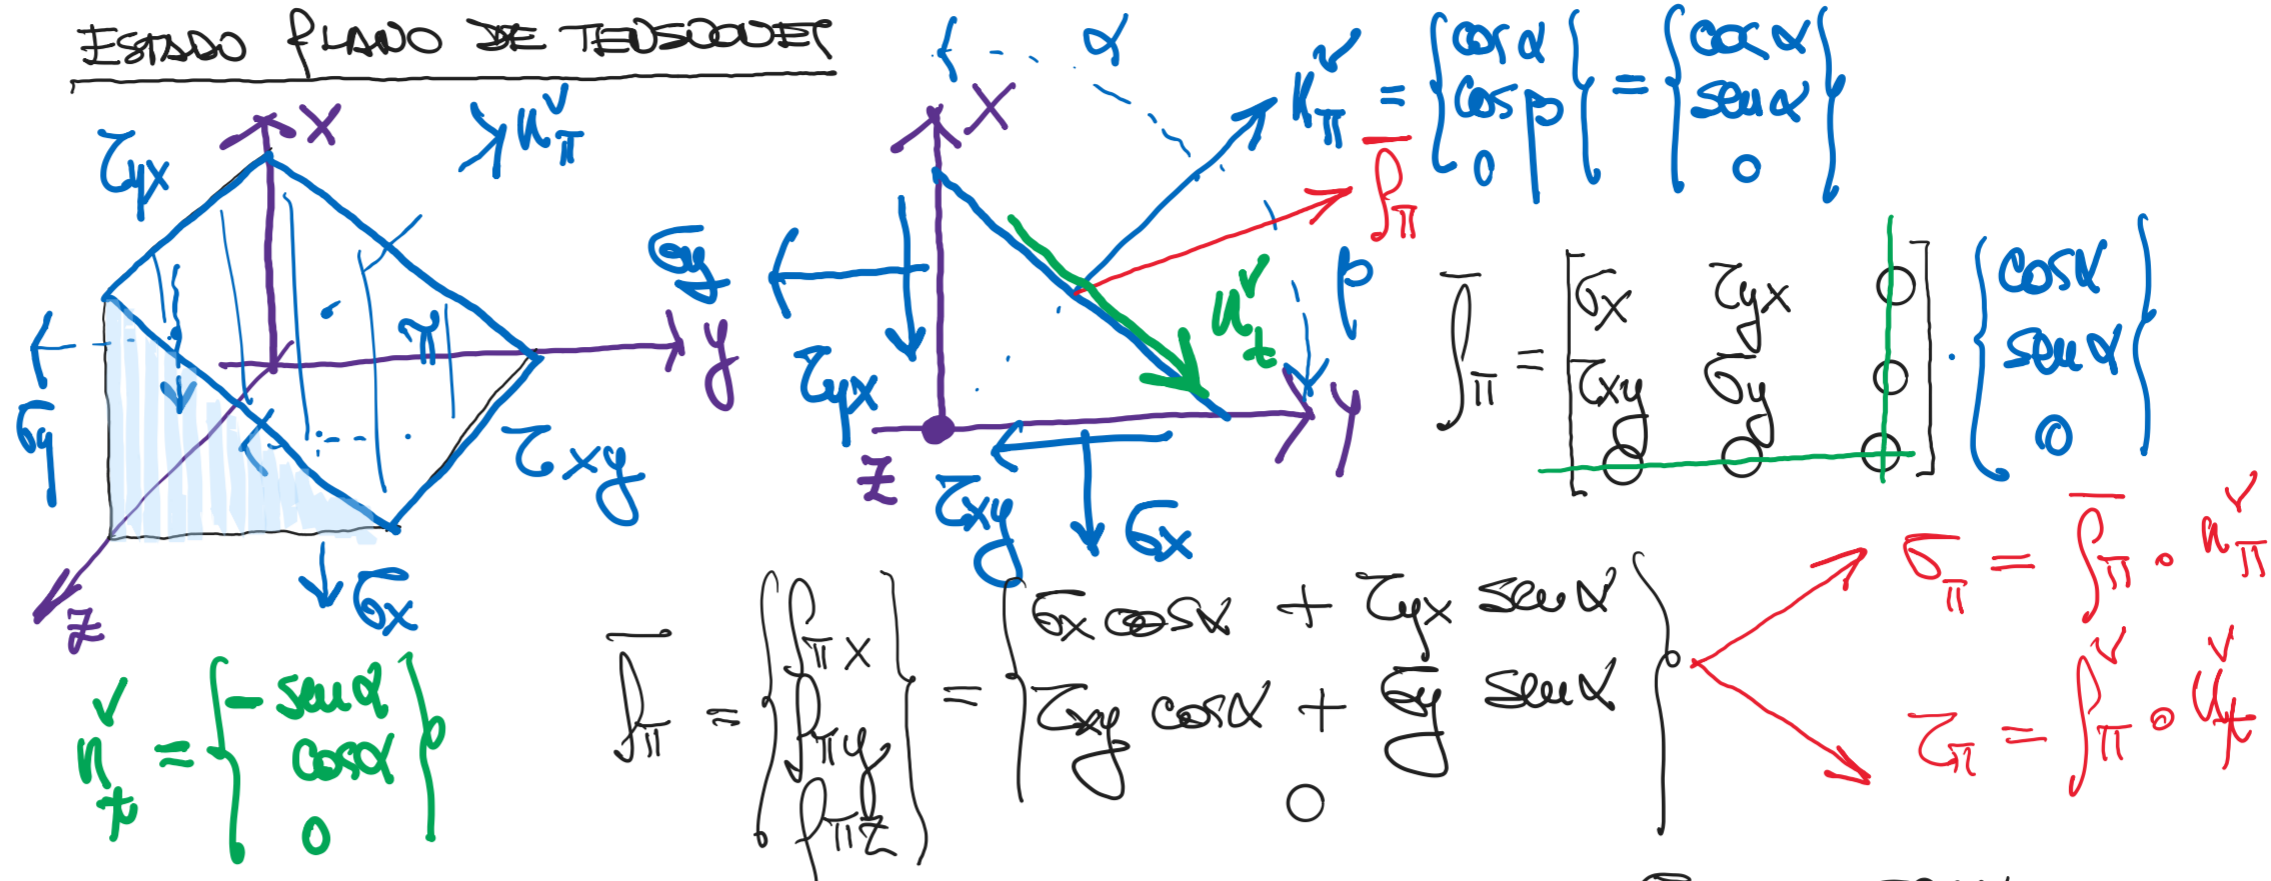 ESTADO PLANO DE TENSIONES
X
τyx
ň_π
π
y
σy
τxy
σx
z
α
X
ň_π = {cos α, cos β, 0} = {cos α, sen α, 0}
ρ̄_π
β
σy
τyx
ň_t
y
z
τxy
σx
ρ̄_π = [σx τyx 0; τxy σy 0; 0 0 0] · {cos α, sen α, 0}
ň_t = {-sen α, cos α, 0}
ρ̄_π = {ρ_πx, ρ_πy, ρ_πz} = {σx cos α + τyx sen α, τxy cos α + σy sen α, 0}
σ_π = ρ̄_π ∘ ň_π
τ_π = ρ̌_π ∘ ǔ_t